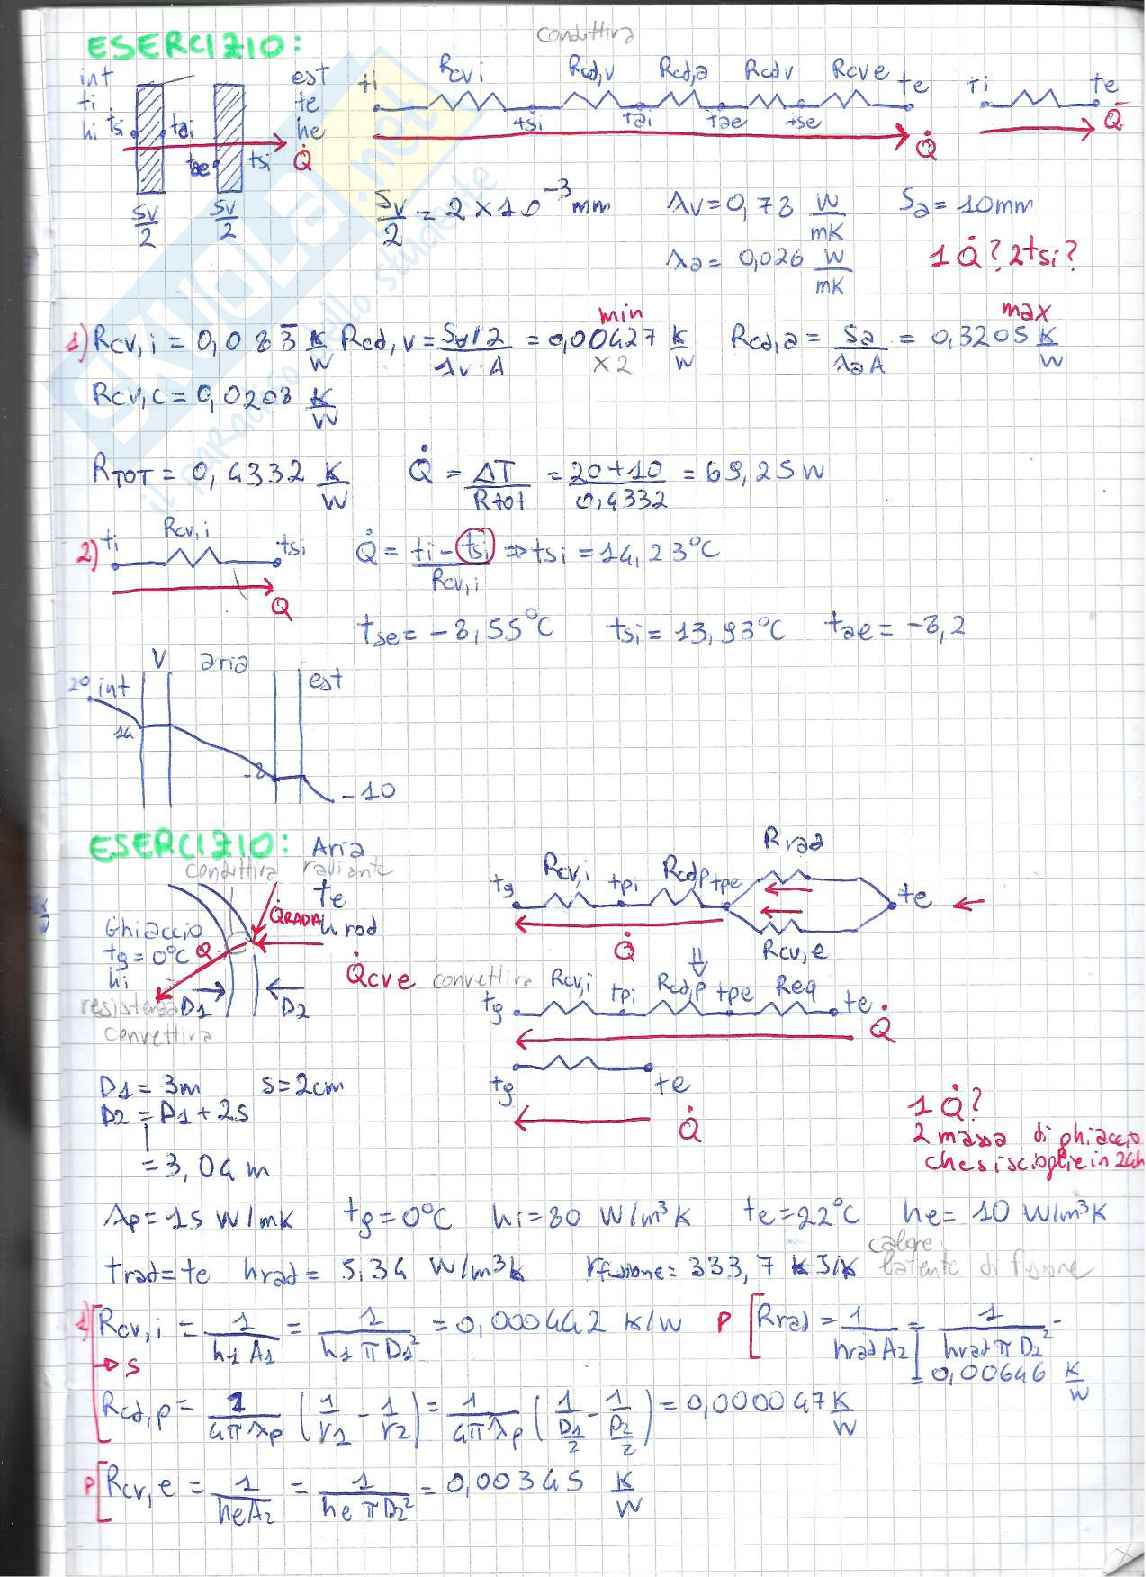 ESERCIZIO:
conduttiva
int
ti
hi
tsi
tai
tae
tsi
est
te
he
Q̇
Sv/2
Sv/2
ti Rcvi Rcd,v Rcd,a Rcdv Rcve te
tsi tai tae tse
Q̇
ti te
Q̇
Sv/2 = 2 × 10⁻³ mm λv = 0,78 W/mK Sa = 10mm
λa = 0,026 W/mK 1 Q̇? 2 tsi?
min max
1) Rcv,i = 0,083̅ K/W Rcd,v = (Sv/2)/(λv A) = 0,00427 K/W Rcd,a = Sa/(λa A) = 0,3205 K/W
×2
Rcv,e = 0,0208 K/W
RTOT = 0,4332 K/W Q̇ = ΔT/Rtot = (20+10)/0,4332 = 69,25 W
2) ti Rcv,i tsi Q̇ = (ti - tsi)/Rcv,i ⇒ tsi = 14,23°C
Q̇
tse = -8,55°C tsi = 13,93°C tae = -8,2
V aria
20 int est
14
-8
-10
ESERCIZIO: Aria
conduttiva radiante
te
Q̇RADA hrad
Ghiaccio
tg = 0°C Q̇
hi
Q̇cve convettiva
resistenza D1 D2
convettiva
tg Rcv,i tpi Rcd,p tpe Rrad te
Rcv,e
Q̇
tg Rcv,i tpi Rcd,p tpe Req te
Q̇
tg te
Q̇
D1 = 3m s = 2cm
D2 = D1 + 2s
= 3,04 m
1 Q̇?
2 massa di ghiaccio
che si scioglie in 24h
λp = 15 W/mK tg = 0°C hi = 80 W/m³K te = 22°C he = 10 W/m³K
trad = te hrad = 5,34 W/m³k rfusione = 333,7 kJ/K calore latente di fusione
1) Rcv,i = 1/(h1 A1) = 1/(h1 π D1²) = 0,000442 K/W P [Rrad = 1/(hrad A2) = 1/(hrad π D2²) =
→ S = 0,00646 K/W
Rcd,p = 1/(4πλp) (1/r1 - 1/r2) = 1/(4πλp) (1/(D1/2) - 1/(D2/2)) = 0,000047 K/W
P [Rcv,e = 1/(he A2) = 1/(he π D2²) = 0,00345 K/W